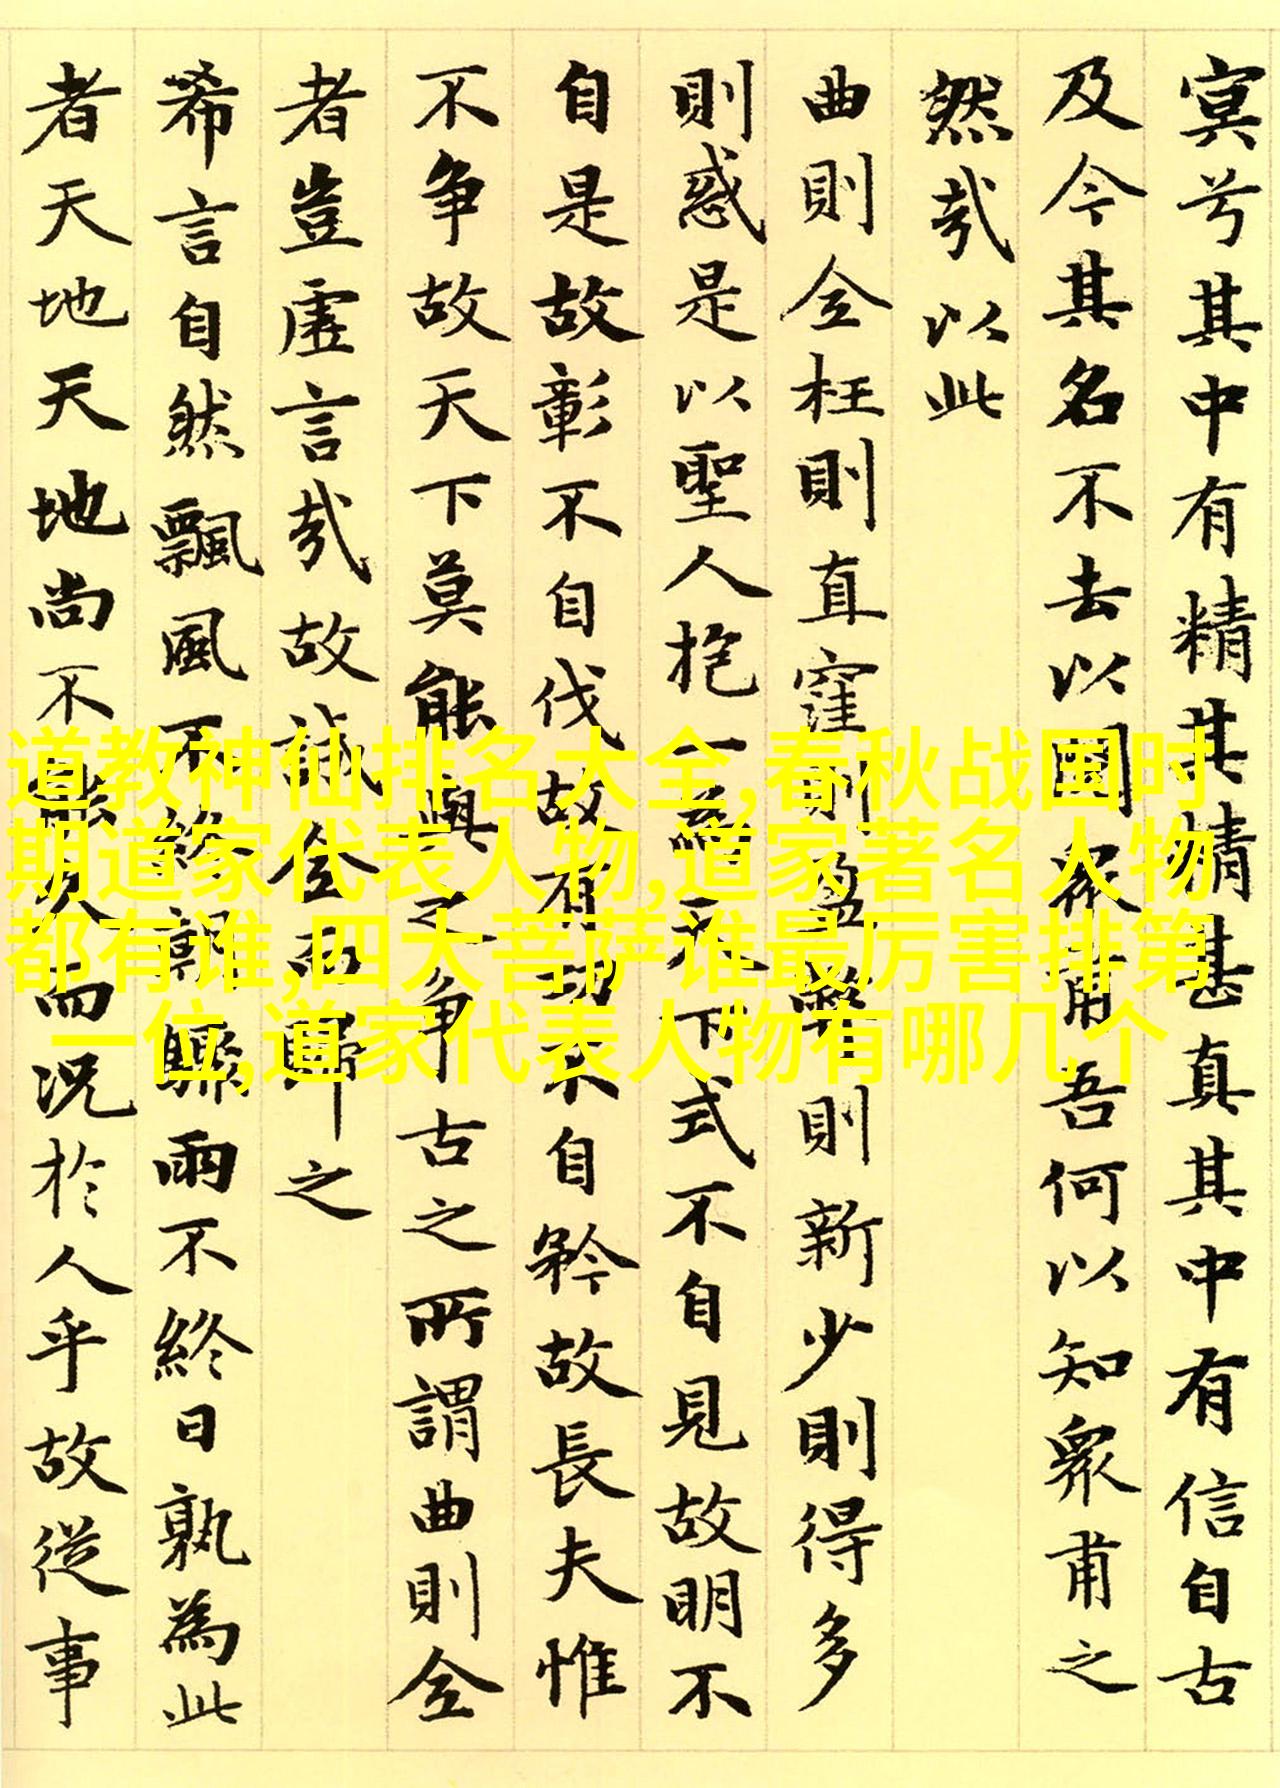 冥兮其中有精其精甚真其中有信自古
及今其名不去以閱衆甫吾何以知衆甫之
然哉以此
曲則全枉則直窪則盈弊則新少則得多
則惑是以聖人抱一為天下式不自見故明不
自是故彰不自伐故有功不自矜故長夫惟
不争故天下莫能與之争古之所謂曲則全
者豈虛言哉故誠全而歸之
希言自然飄風不終朝驟雨不終日孰為此
者天地天地尚不能久而況於人乎故從事
道教神仙排名大全,春秋战国时
期道家代表人物,道家著名人物
都有谁,四大菩萨谁最厉害排第
一位,道家代表人物有哪几个